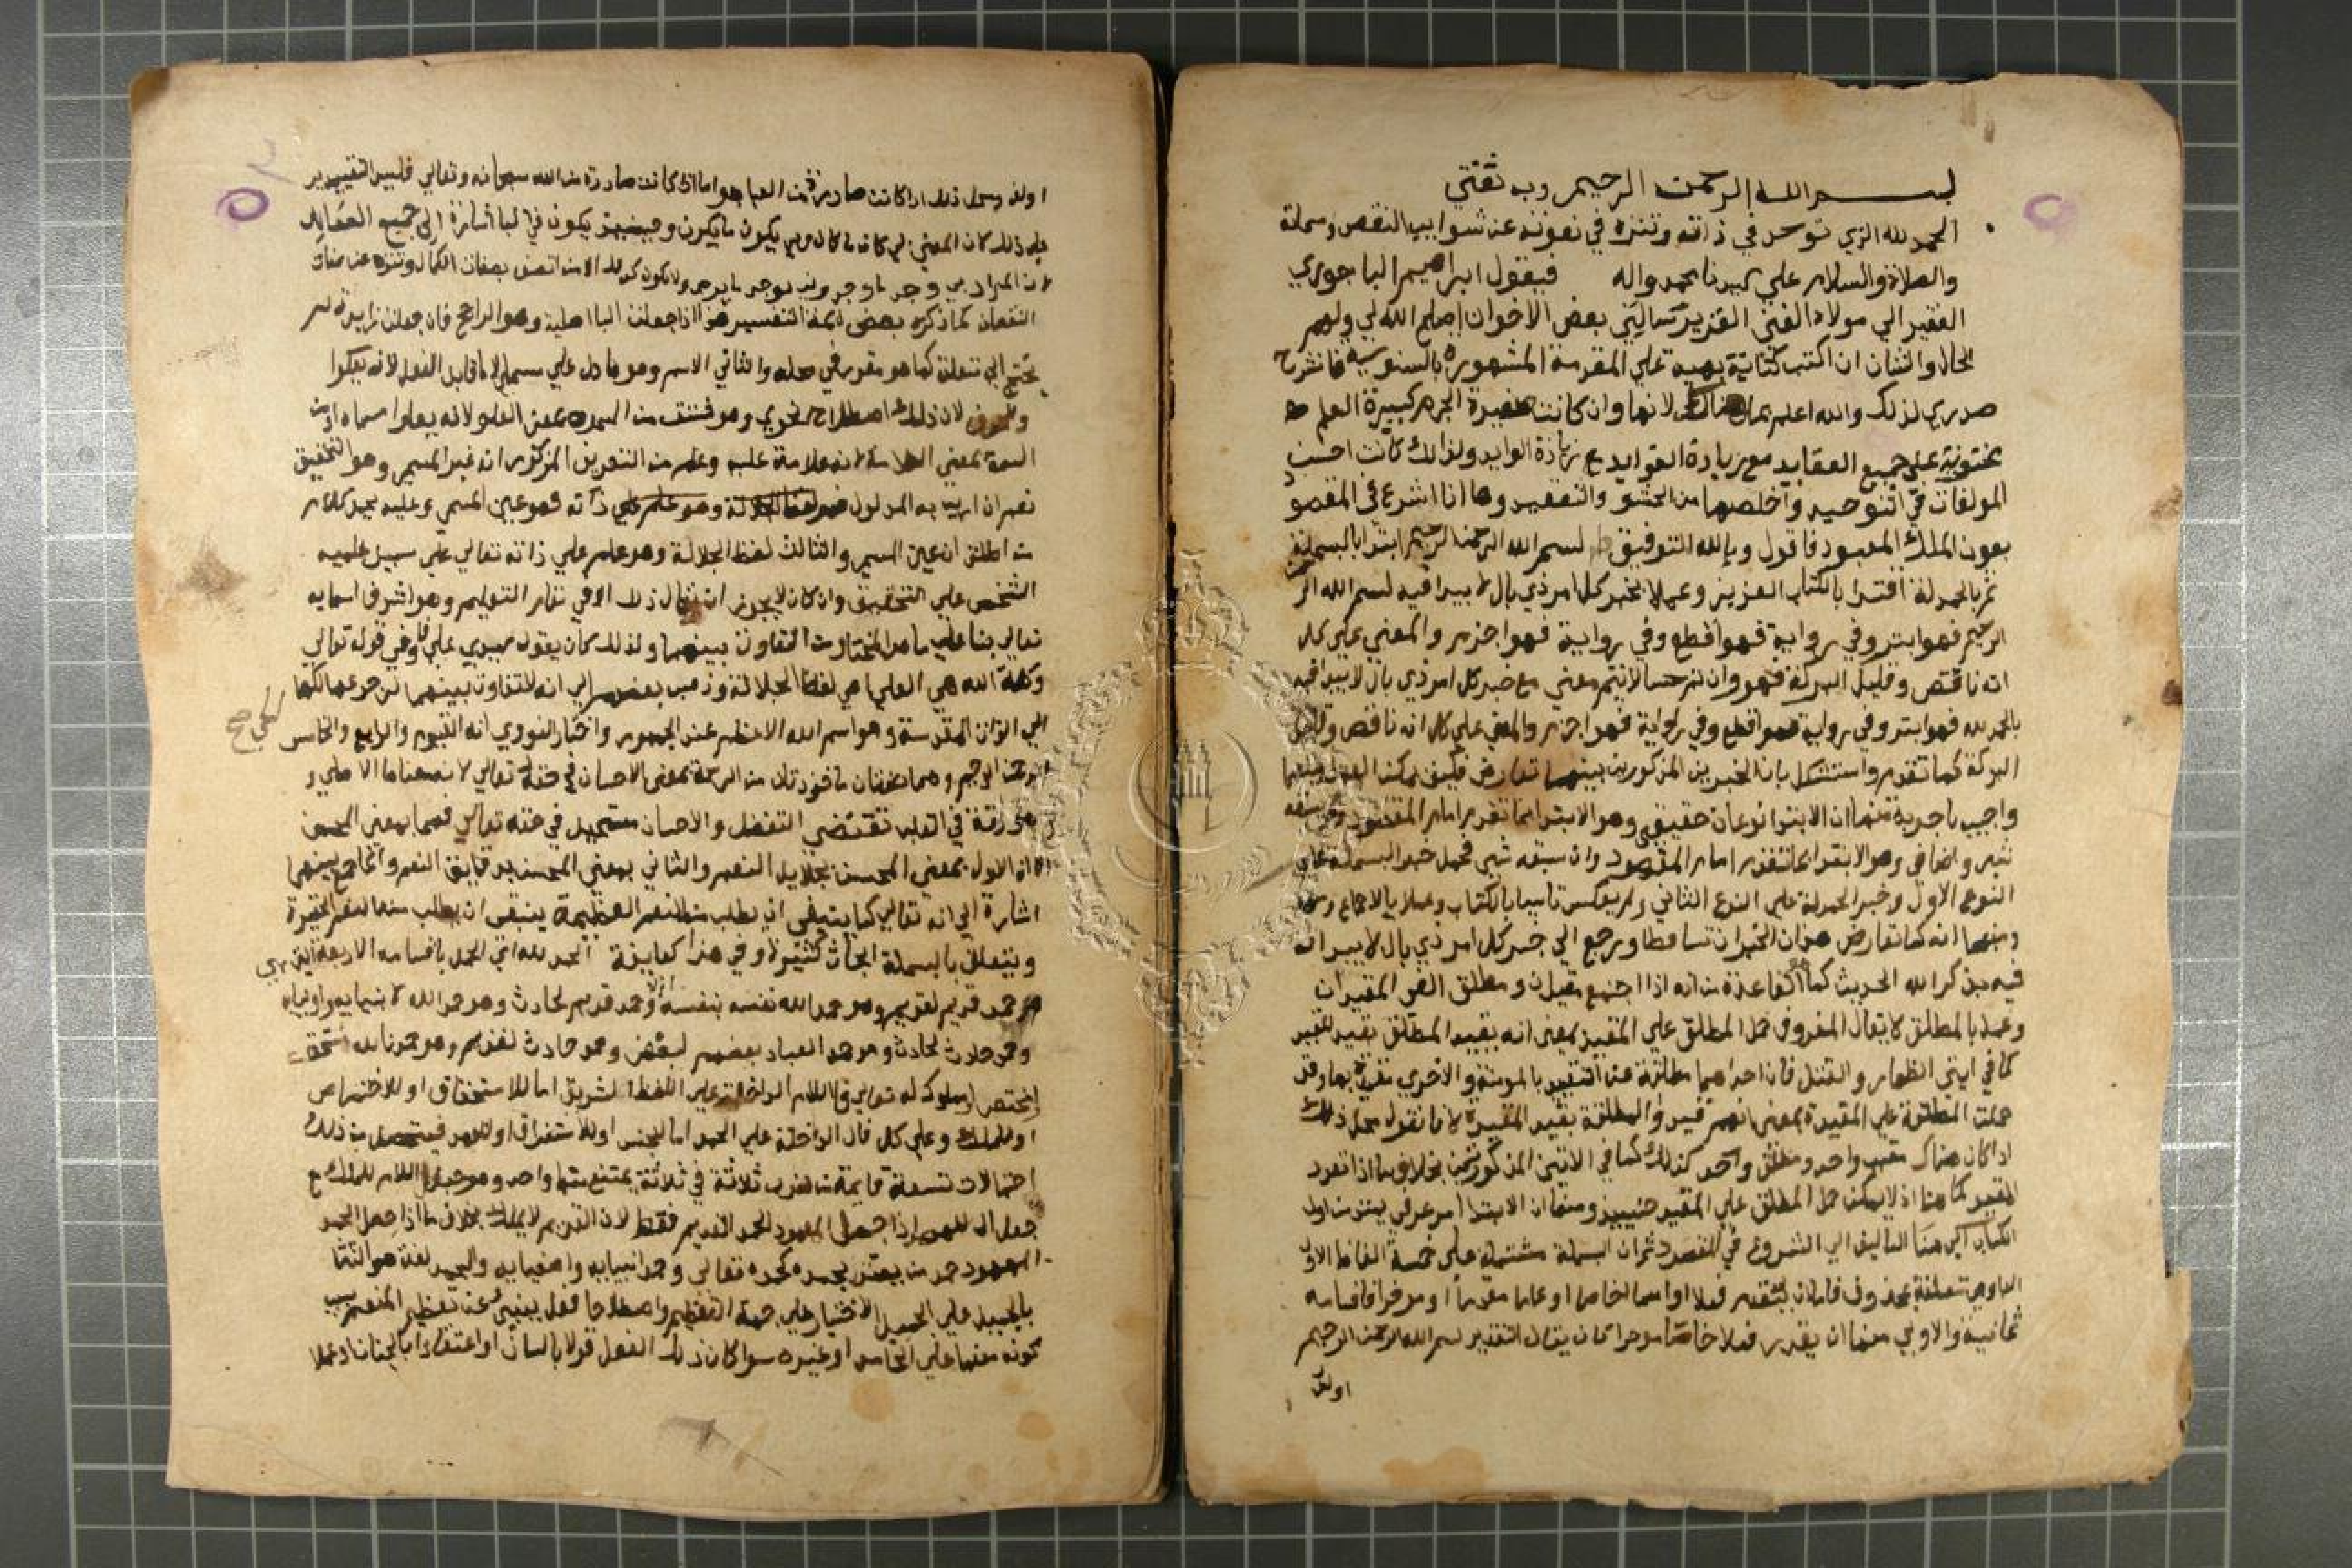 بسم الله الرحمن الرحيم وبه ثقتي
الحمد لله الذي توحد في ذاته وتنزه في نعوته عن شوايب النقص وسماته
والصلاة والسلام علي سيدنا محمد واله فيقول ابراهيم الباجوري
الفقير الي مولاه الغني القدير سالني بعض الاخوان اصلح الله لي ولهم
الحال والشان ان اكتب كتابة بهية علي المقدمة المشهورة بالسنوسية فانشرح
صدري لذلك والله اعلم بما هنالك لانها وان كانت صغيرة الجرم كبيرة العلم
محتوية علي جميع العقايد مع زيادة الفوايد ولذلك كانت احسن
المولفات في التوحيد واخلصها من الحشو والتعقيد وها انا اشرع في المقصود
بعون الملك المعبود فاقول وبالله التوفيق بسم الله الرحمن الرحيم ابتدا بالبسملة
ثم بالحمدلة اقتدا بالكتاب العزيز وعملا بخبر كل امر ذي بال لا يبدا فيه ببسم الله الر
الرحيم فهو ابتر وفي رواية فهو اقطع وفي رواية فهو اجزم والمعني علي كل
انه ناقص وقليل البركة فهو وان تم حسا لا يتم معني مع خبر كل امر ذي بال لا يبدا فيه
بالحمد لله فهو ابتر وفي رواية فهو اقطع وفي رواية فهو اجزم والمعني علي كل انه ناقص وقليل
البركة كما تقدم واستشكل بان الخبرين المذكورين بينهما تعارض فكيف يمكن العمل بهما
واجيب باجوبة منها ان الابتدا نوعان حقيقي وهو الابتدا بما تقدم امام المقصود ولم يسبقه
شي واضافي وهو الابتدا بما تقدم امام المقصود وان سبقه شي فحمل خبر البسملة علي
النوع الاول وخبر الحمدلة علي النوع الثاني ولم يعكس تاسيا بالكتاب وعملا بالاجماع
ومنها انه لما تعارض هذان الخبران تساقطا ورجع الي خبر كل امر ذي بال لا يبدا
فيه بذكر الله الحديث كما القاعدة من انه اذا اجتمع مقيدان ومطلق الغي المقيدان
وعمل بالمطلق لا يقال المعروف حمل المطلق علي المقيد بمعني انه يقيد المطلق بقيد المقيد
كما في ايتي الظهار والقتل فان احداهما مطلقة عن التقييد بالمومنة والاخري مقيدة بها وقد
حملت المطلقة علي المقيدة بمعني انهم قيدوا المطلقة بقيد المقيدة لانا نقول محل ذلك
اذا كان هناك مقيد واحد ومطلق واحد كذلك كما في الايتين المذكورتين بخلاف ما اذا تعدد
المقيد كما هنا اذ لا يمكن حمل المطلق علي المقيد حينيذ ومنها ان الابتدا امر عرفي يمتد من اول
الكتاب الي هنا التاليف الي الشروع في المقصود ثم ان البسملة مشتملة علي خمسة الفاظ الاول
الباء وهي متعلقة بمحذوف فاما ان يقدر فعلا او اسما خاصا او عاما مقدما او موخرا فاقسامه
ثمانية والاولي منها ان يقدر فعلا خاصا موخرا كان يقال التقدير بسم الله الرحمن الرحيم
اولف
اولف ومحل ذلك اذا كانت صادرة من العباد واما اذا كانت صادرة من الله سبحانه وتعالي فليس التقدير
علي ذلك كان المعني بي كان ما كان وبي يكون ما يكون وحينيذ يكون في البا اشارة الي جميع العقايد
لان المراد بي وجد ما وجد وبي يوجد ما يوجد ولا يكون كذلك الا من اتصف بصفات الكمال وتنزه عن صفات
النقصان كما ذكره بعض ايمة التفسير هذا اذا جعلت البا اصلية وهو الراجح فان جعلت زايدة لم
تحتج الي متعلق كما هو مقرر في محله والثاني الاسم وهو ما دل علي مسمي لا ما قابل الفعل
وحرف لان ذلك اصطلاح نحوي وهو مشتق من السمو بمعني العلو لانه يعلوا مسماه او من
السمة بمعني العلامة لانه علامة عليه وعلم من التعريف المذكور انه غير المسمي وهو التحقيق
نعم ان اريد به المدلول فهو عين المسمي وعليه يحمل كلام
من اطلق انه عين المسمي والثالث لفظ الجلالة وهو علم علي ذاته تعالي علي سبيل علمية
الشخص علي التحقيق وان كان لا يجوز ان يقال ذلك الا في مقام التعليم وهو اشرف اسمايه
تعالي بنا علي ما هو المختار من التفاوت بينهما ولذلك كان يقول سيدي علي وفي في قوله تعالي
وكلمة الله هي العليا هي لفظ الجلالة وذهب بعضهم الي انه لا تفاوت بينهما لرجوعها كلها
الي الذات المقدسة وهو اسم الله الاعظم عند الجمهور واختار النووي انه القيوم والرابع والخامس
الرحمن الرحيم وهما صفتان ماخوذتان من الرحمة بمعني الاحسان في حقه تعالي لا بمعناها الاصلي
وهي رقة في القلب تقتضي التفضل والاحسان مستحيل في حقه تعالي فهما بمعني المحسن
الا ان الاول بمعني المحسن بجلايل النعم والثاني بمعني المحسن بدقايق النعم والجامع بينهما
اشارة الي انه تعالي كما ينبغي ان يطلب منه النعم العظيمة ينبغي ان يطلب منه النعم الحقيرة
ويتعلق بالبسملة ابحاث كثيرة وفي هذا كفاية الحمد لله اي الحمد باقسامه الاربعة التي هي
حمد قديم لقديم وهو حمد الله نفسه بنفسه وحمد قديم لحادث وهو حمد الله لانبيايه واوليايه
وحمد حادث لحادث وهو حمد العباد بعضهم لبعض وحمد حادث لقديم وهو حمدنا لله مستحق
او مختص او مملوك له تعالي فاللام الداخلة علي اللفظ الشريف اما للاستحقاق او للاختصاص
او للملك وعلي كل فال الداخلة علي الحمد اما للجنس او للاستغراق او للعهد فيتحصل من ذلك
احتمالات تسعة قايمة من ضرب ثلاثة في ثلاثة يمتنع منها واحد وهو جعل اللام للملك مع
جعل ال للعهد اذا جعل المعهود الحمد القديم فقط لان القديم لا يملك بخلاف ما اذا جعل الحمد
المعهود حمد من يعتد بحمده كحمده تعالي وحمد انبيايه واصفيايه والحمد لغة هو الثنا
بالجميل علي الجميل الاختياري علي جهة التعظيم واصطلاحا فعل ينبي عن تعظيم المنعم بسبب
كونه منعما علي الحامد او غيره سوا كان ذلك الفعل قولا باللسان او اعتقادا بالجنان او عملا